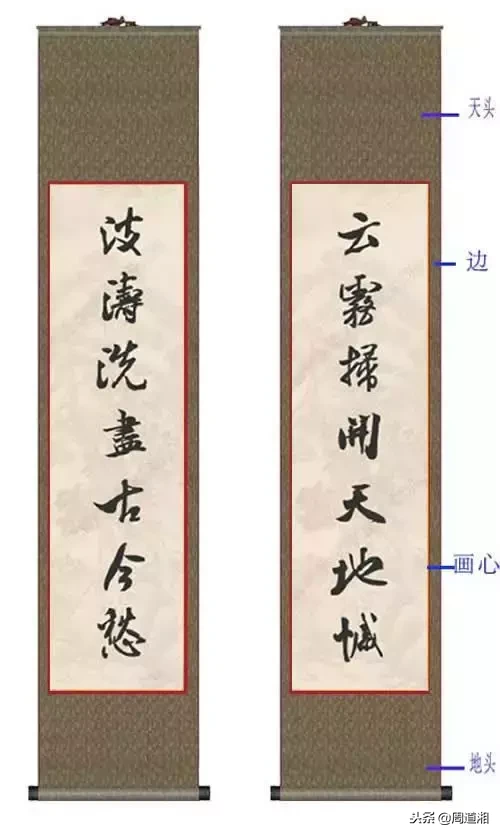 云霧掃開天地憾
波濤洗盡古今愁
天头
边
画心
地头
头条 @周道湘